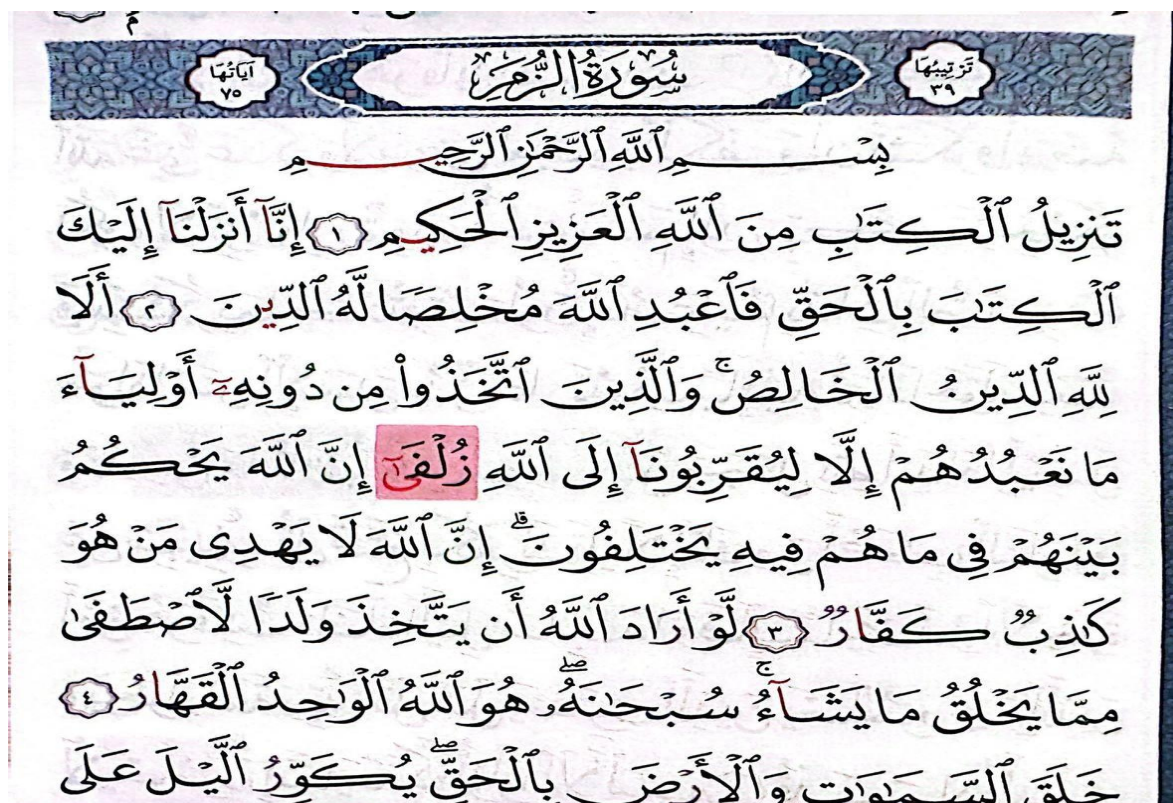 ترتيبها ٣٩ سُورَةُ الزُّمَرِ آياتها ٧٥
بِسْمِ ٱللَّهِ ٱلرَّحْمَٰنِ ٱلرَّحِيمِ
تَنزِيلُ ٱلْكِتَٰبِ مِنَ ٱللَّهِ ٱلْعَزِيزِ ٱلْحَكِيمِ ١ إِنَّآ أَنزَلْنَآ إِلَيْكَ
ٱلْكِتَٰبَ بِٱلْحَقِّ فَٱعْبُدِ ٱللَّهَ مُخْلِصًا لَّهُ ٱلدِّينَ ٢ أَلَا
لِلَّهِ ٱلدِّينُ ٱلْخَالِصُ ۚ وَٱلَّذِينَ ٱتَّخَذُوا۟ مِن دُونِهِۦٓ أَوْلِيَآءَ
مَا نَعْبُدُهُمْ إِلَّا لِيُقَرِّبُونَآ إِلَى ٱللَّهِ زُلْفَىٰٓ إِنَّ ٱللَّهَ يَحْكُمُ
بَيْنَهُمْ فِى مَا هُمْ فِيهِ يَخْتَلِفُونَ ۗ إِنَّ ٱللَّهَ لَا يَهْدِى مَنْ هُوَ
كَٰذِبٌ كَفَّارٌ ٣ لَّوْ أَرَادَ ٱللَّهُ أَن يَتَّخِذَ وَلَدًا لَّٱصْطَفَىٰ
مِمَّا يَخْلُقُ مَا يَشَآءُ ۚ سُبْحَٰنَهُۥ ۖ هُوَ ٱللَّهُ ٱلْوَٰحِدُ ٱلْقَهَّارُ ٤
خَلَقَ ٱلسَّمَٰوَٰتِ وَٱلْأَرْضَ بِٱلْحَقِّ ۖ يُكَوِّرُ ٱلَّيْلَ عَلَى